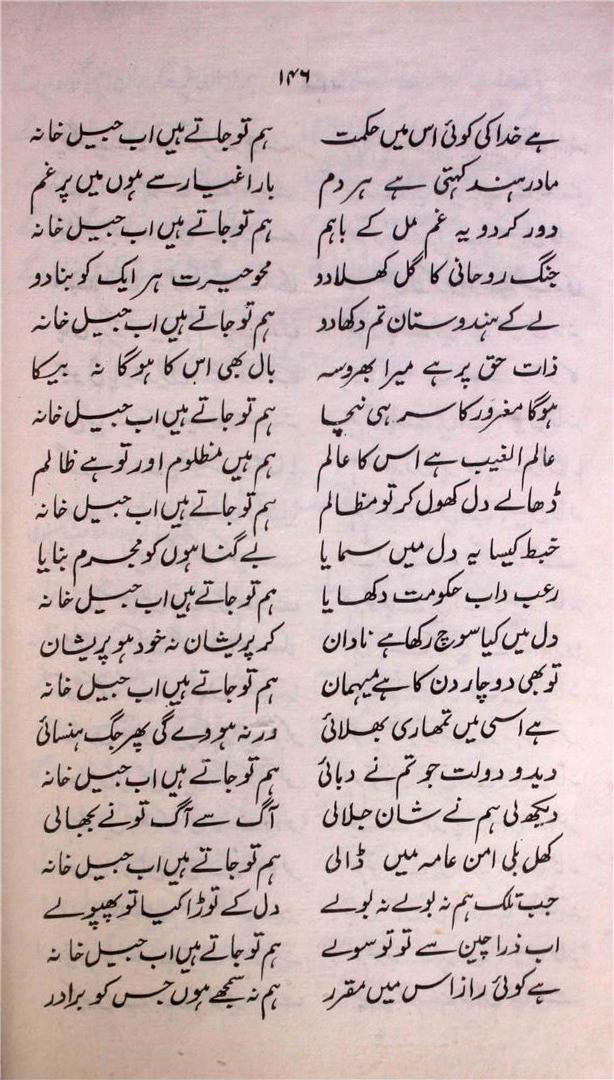 ۱۴۶
ہے خدا کی کوئی اس میں حکمت ہم تو جاتے ہیں اب جیل خانہ
مادر ہند کہتی ہے ہر دم بار اغیار سے ہوں میں پر غم
دور کردو یہ غم مل کے باہم ہم تو جاتے ہیں اب جیل خانہ
جنگ روحانی کا گل کھلادو محو حیرت ہر ایک کو بنادو
لے کے ہندوستان تم دکھادو ہم تو جاتے ہیں اب جیل خانہ
ذات حق پر ہے میرا بھروسہ بال بھی اس کا ہوگا نہ بیکا
ہوگا مغرور کا سر ہی نیچا ہم تو جاتے ہیں اب جیل خانہ
عالم الغیب ہے اس کا عالم ہم ہیں مظلوم اور تو ہے ظالم
ڈھالے دل کھول کر تو مظالم ہم تو جاتے ہیں اب جیل خانہ
خبط کیسا یہ دل میں سمایا بے گناہوں کو مجرم بنایا
رعب داب حکومت دکھایا ہم تو جاتے ہیں اب جیل خانہ
دل میں کیا سوچ رکھا ہے نادان کر پریشان نہ خود ہو پریشان
تو بھی دو چار دن کا ہے میہمان ہم تو جاتے ہیں اب جیل خانہ
ہے اسی میں تمھاری بھلائی ورنہ ہووے گی پھر جگ ہنسائی
دیدو دولت جو تم نے دبائی ہم تو جاتے ہیں اب جیل خانہ
دیکھ لی ہم نے شان جلالی آگ سے آگ تو نے بجھالی
کھل بلی امن عامہ میں ڈالی ہم تو جاتے ہیں اب جیل خانہ
جب تلک ہم نہ بولے نہ بولے دل کے توڑا کیا تو پھپولے
اب ذرا چین سے تو تو سولے ہم تو جاتے ہیں اب جیل خانہ
ہے کوئی راز اس میں مقرر ہم نہ سمجھے ہوں جس کو برادر